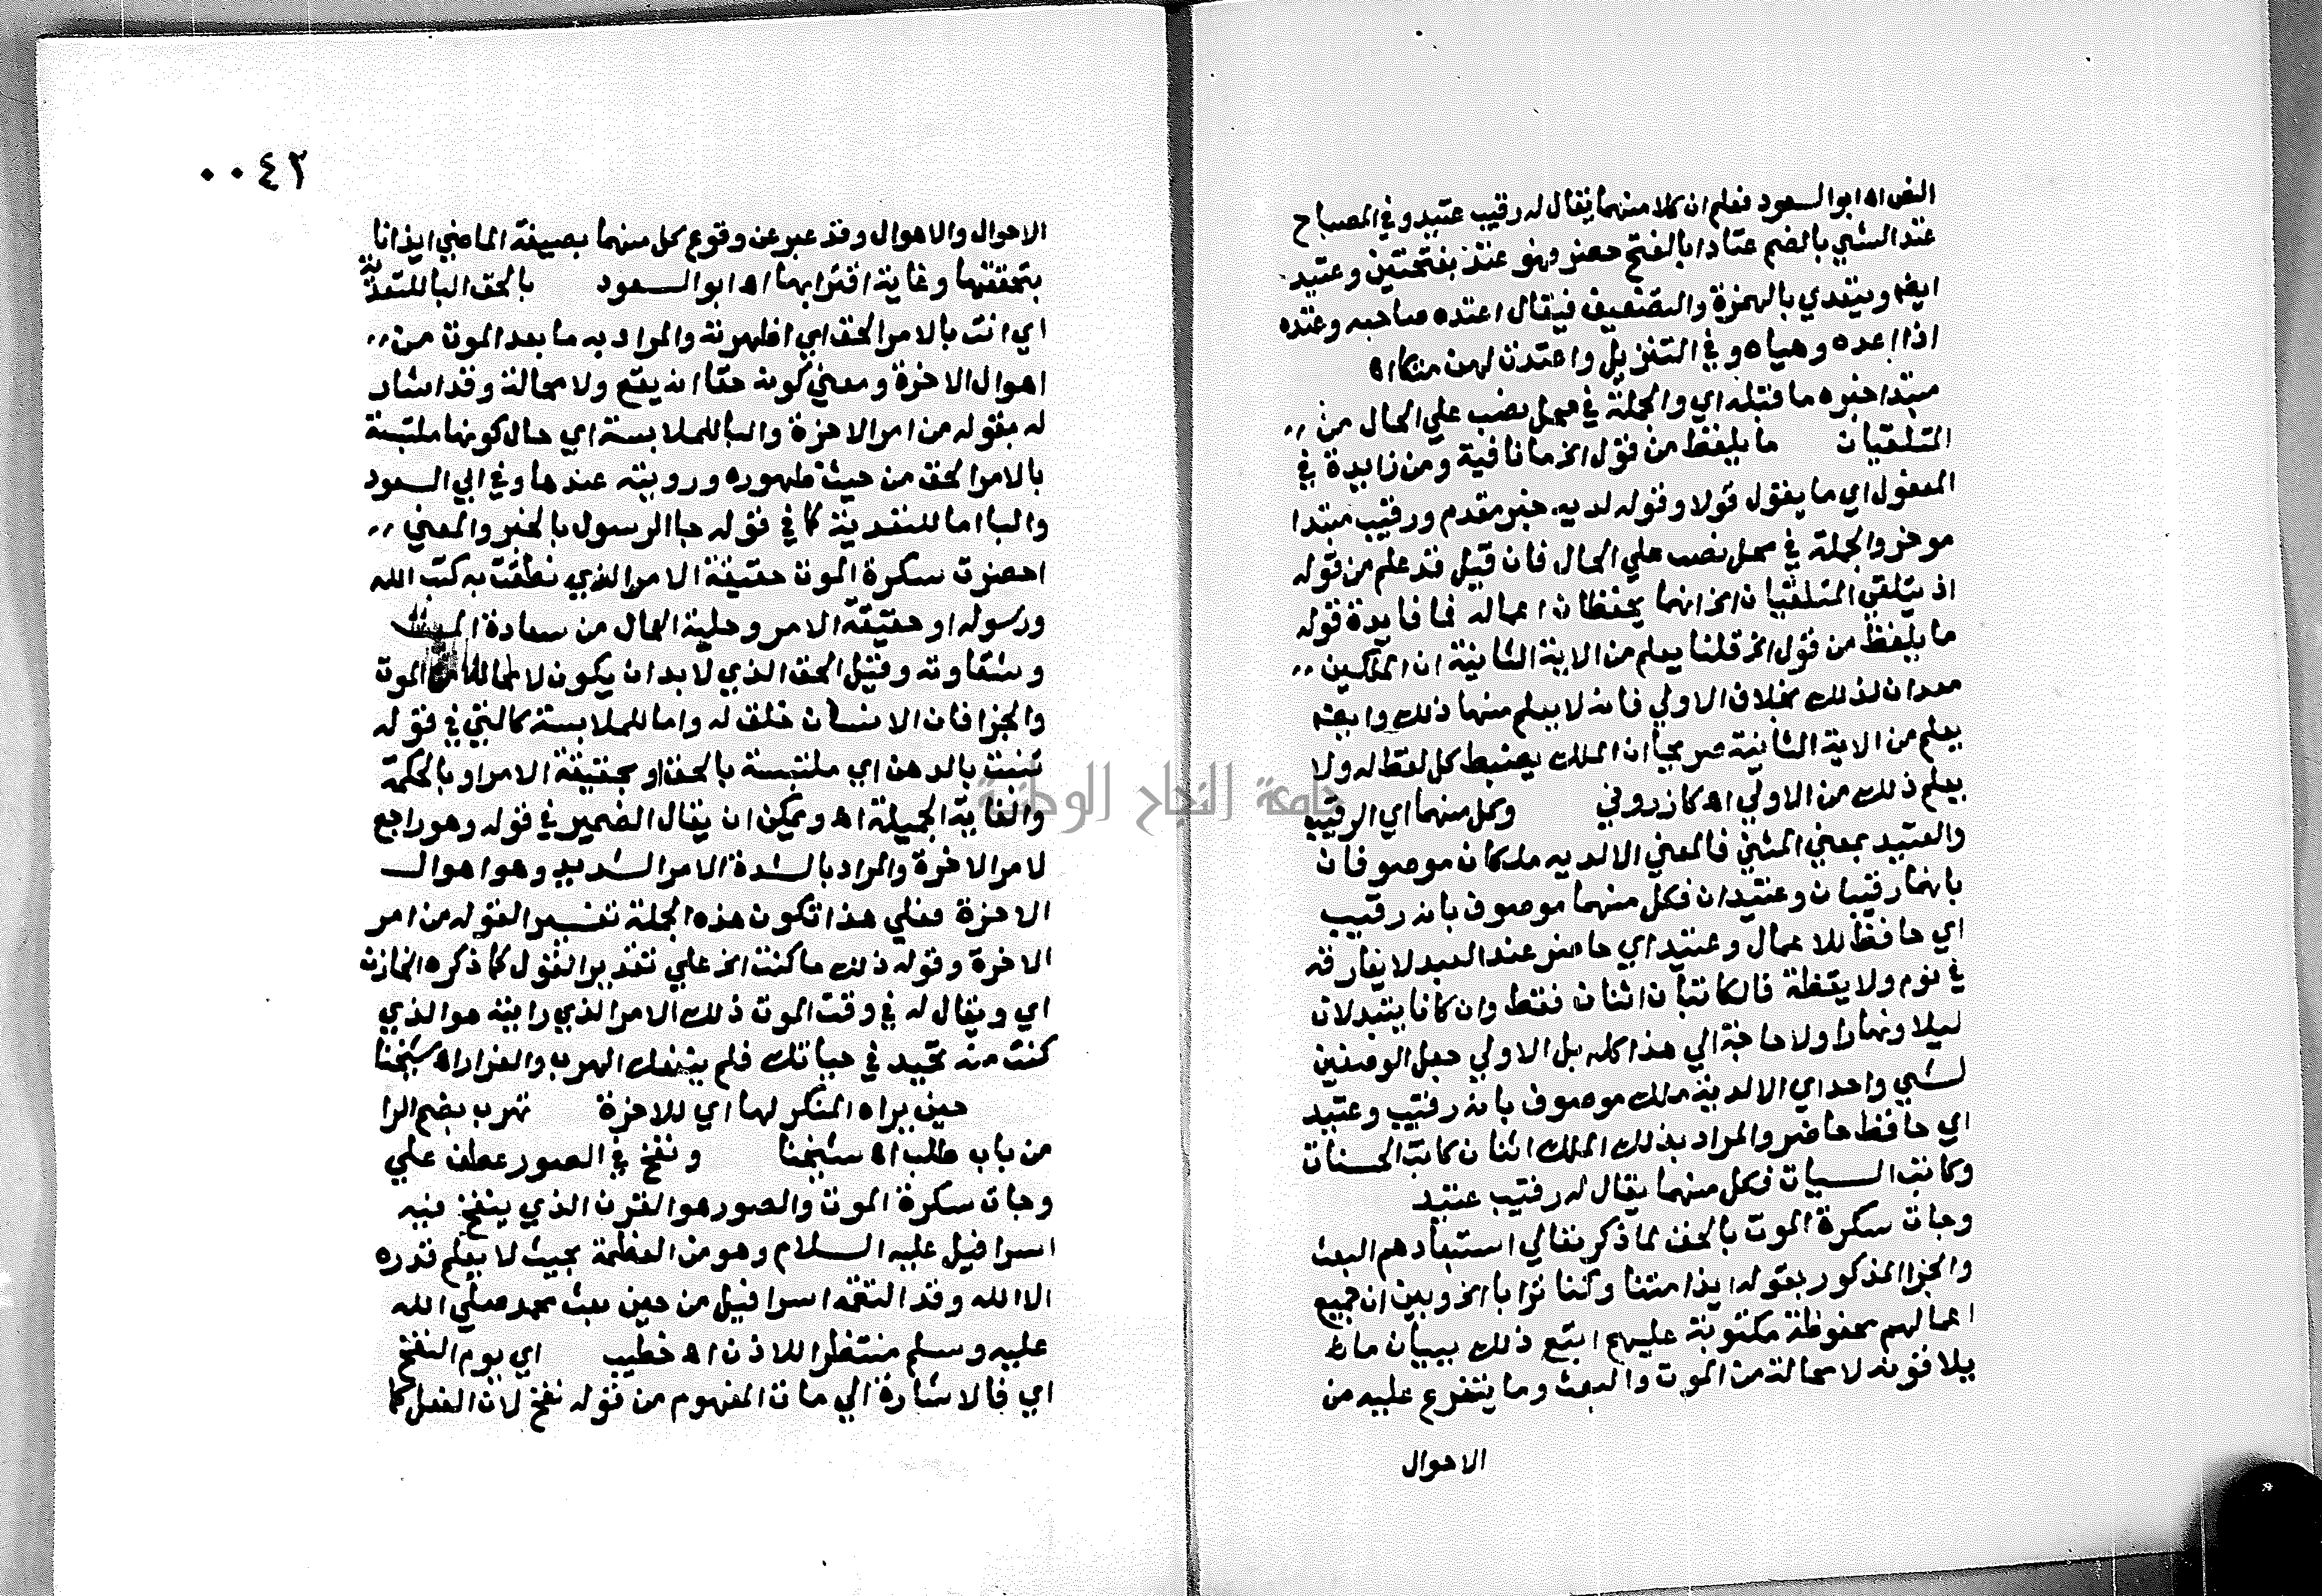 النص اه ابو السعود فعلم ان كلا منهما يقال له رقيب عتيد وفي المصباح
عتد الشي بالضم عتادا بالفتح حضر فهو عتد بفتحتين وعتيد
ايضا ويتعدي بالهمزة والتضعيف فيقال اعتده صاحبه وعتده
اذا اعده وهياه وفي التنزيل واعتدت لهن متكا اه
مبتدا خبره ما قبله اي والجملة في محل نصب علي الحال من
المتلقيان ما يلفظ من قول الخ ما نافية ومن زايدة في
المفعول اي ما يقول قولا وقوله لديه خبر مقدم ورقيب مبتدا
موخر والجملة في محل نصب علي الحال فان قيل قد علم من قوله
اذ يتلقي المتلقيان الخ انهما يحفظان اعماله فما فايدة قوله
ما يلفظ من قول الخ قلنا يعلم من الاية الثانية ان الملكين
معدان لذلك بخلاف الاولي فانه لا يعلم منها ذلك وايضا
يعلم من الاية الثانية صريحا ان الملك يضبط كل لفظ له ولا
يعلم ذلك من الاولي اه كازروني وكل منهما اي الرقيب
والعتيد بمعني المثني فالمعني الا لديه ملكان موصوفان
بانهما رقيبان وعتيدان فكل منهما موصوف بانه رقيب
اي حافظ للاعمال وعتيد اي حاضر عند العبد لا يفارقه
في نوم ولا يقظة فالكاتبان اثنان فقط وان كانا يتبدلان
ليلا ونهارا ولا حاجة الي هذا كله بل الاولي جعل الوصفين
لشي واحد اي الا لديه ملك موصوف بانه رقيب وعتيد
اي حافظ حاضر والمراد بذلك الملك اثنان كاتب الحسنات
وكاتب السيات فكل منهما يقال له رقيب عتيد
وجات سكرة الموت بالحق لما ذكر تعالي استبعادهم البعث
والجزا المذكور بقوله ايذا متنا وكنا ترابا الخ وبين ان جميع
اعمالهم محفوظة مكتوبة عليهم اتبع ذلك ببيان ما
يلاقونه لا محالة من الموت والبعث وما يتفرع عليه من
الاحوال
٠٠٤٢
الاحوال والاهوال وقد عبر عن وقوع كل منهما بصيغة الماضي ايذانا
بتحققهما وغاية اقترابهما اه ابو السعود بالحق البا للتعدية
اي اتت بالامر الحق اي اظهرته والمراد به ما بعد الموت من
اهوال الاخرة ومعني كونه حقا انه يقع ولا محالة وقد اشار
له بقوله من امر الاخرة والبا للملابسة اي حال كونها ملتبسة
بالامر الحق من حيث ظهوره ورويته عندها وفي ابي السعود
والبا اما للتعدية كما في قوله جا الرسول بالخبر والمعني
احضرت سكرة الموت حقيقة الامر الذي نطقت به كتب الله
ورسوله او حقيقة الامر وجلية الحال من سعادة الميت
وشقاوته وقيل الحق الذي لا بد ان يكون لا محالة من الموت
والجزا فان الانسان خلق له واما للملابسة كالتي في قوله
تنبت بالدهن اي ملتبسة بالحق او بحقيقة الامر او بالحكمة
والغاية الجميلة اه ويمكن ان يقال الضمير في قوله وهو راجع
لامر الاخرة والمراد بالشدة الامر الشديد وهو اهوال
الاخرة فعلي هذا تكون هذه الجملة تفسير القوله من امر
الاخرة وقوله ذلك ما كنت الخ علي تقدير القول كما ذكره الخازن
اي ويقال له في وقت الموت ذلك الامر الذي رايته هو الذي
كنت منه تحيد في حياتك فلم ينفعك الهرب والفرار اه شيخنا
حين يراه المنكر لها اي للاخرة تهرب بضم الرا
من باب طلب اه شيخنا ونفخ في الصور عطف علي
وجات سكرة الموت والصور هو القرن الذي ينفخ فيه
اسرافيل عليه السلام وهو من العظمة بحيث لا يعلم قدره
الا الله وقد التقمه اسرافيل من حين بعث محمد صلي الله
عليه وسلم منتظرا للاذن اه خطيب اي يوم النفخ
اي فالاشارة الي مات المفهوم من قوله نفخ لان الفعل كما
جامعة النجاح الوطنية